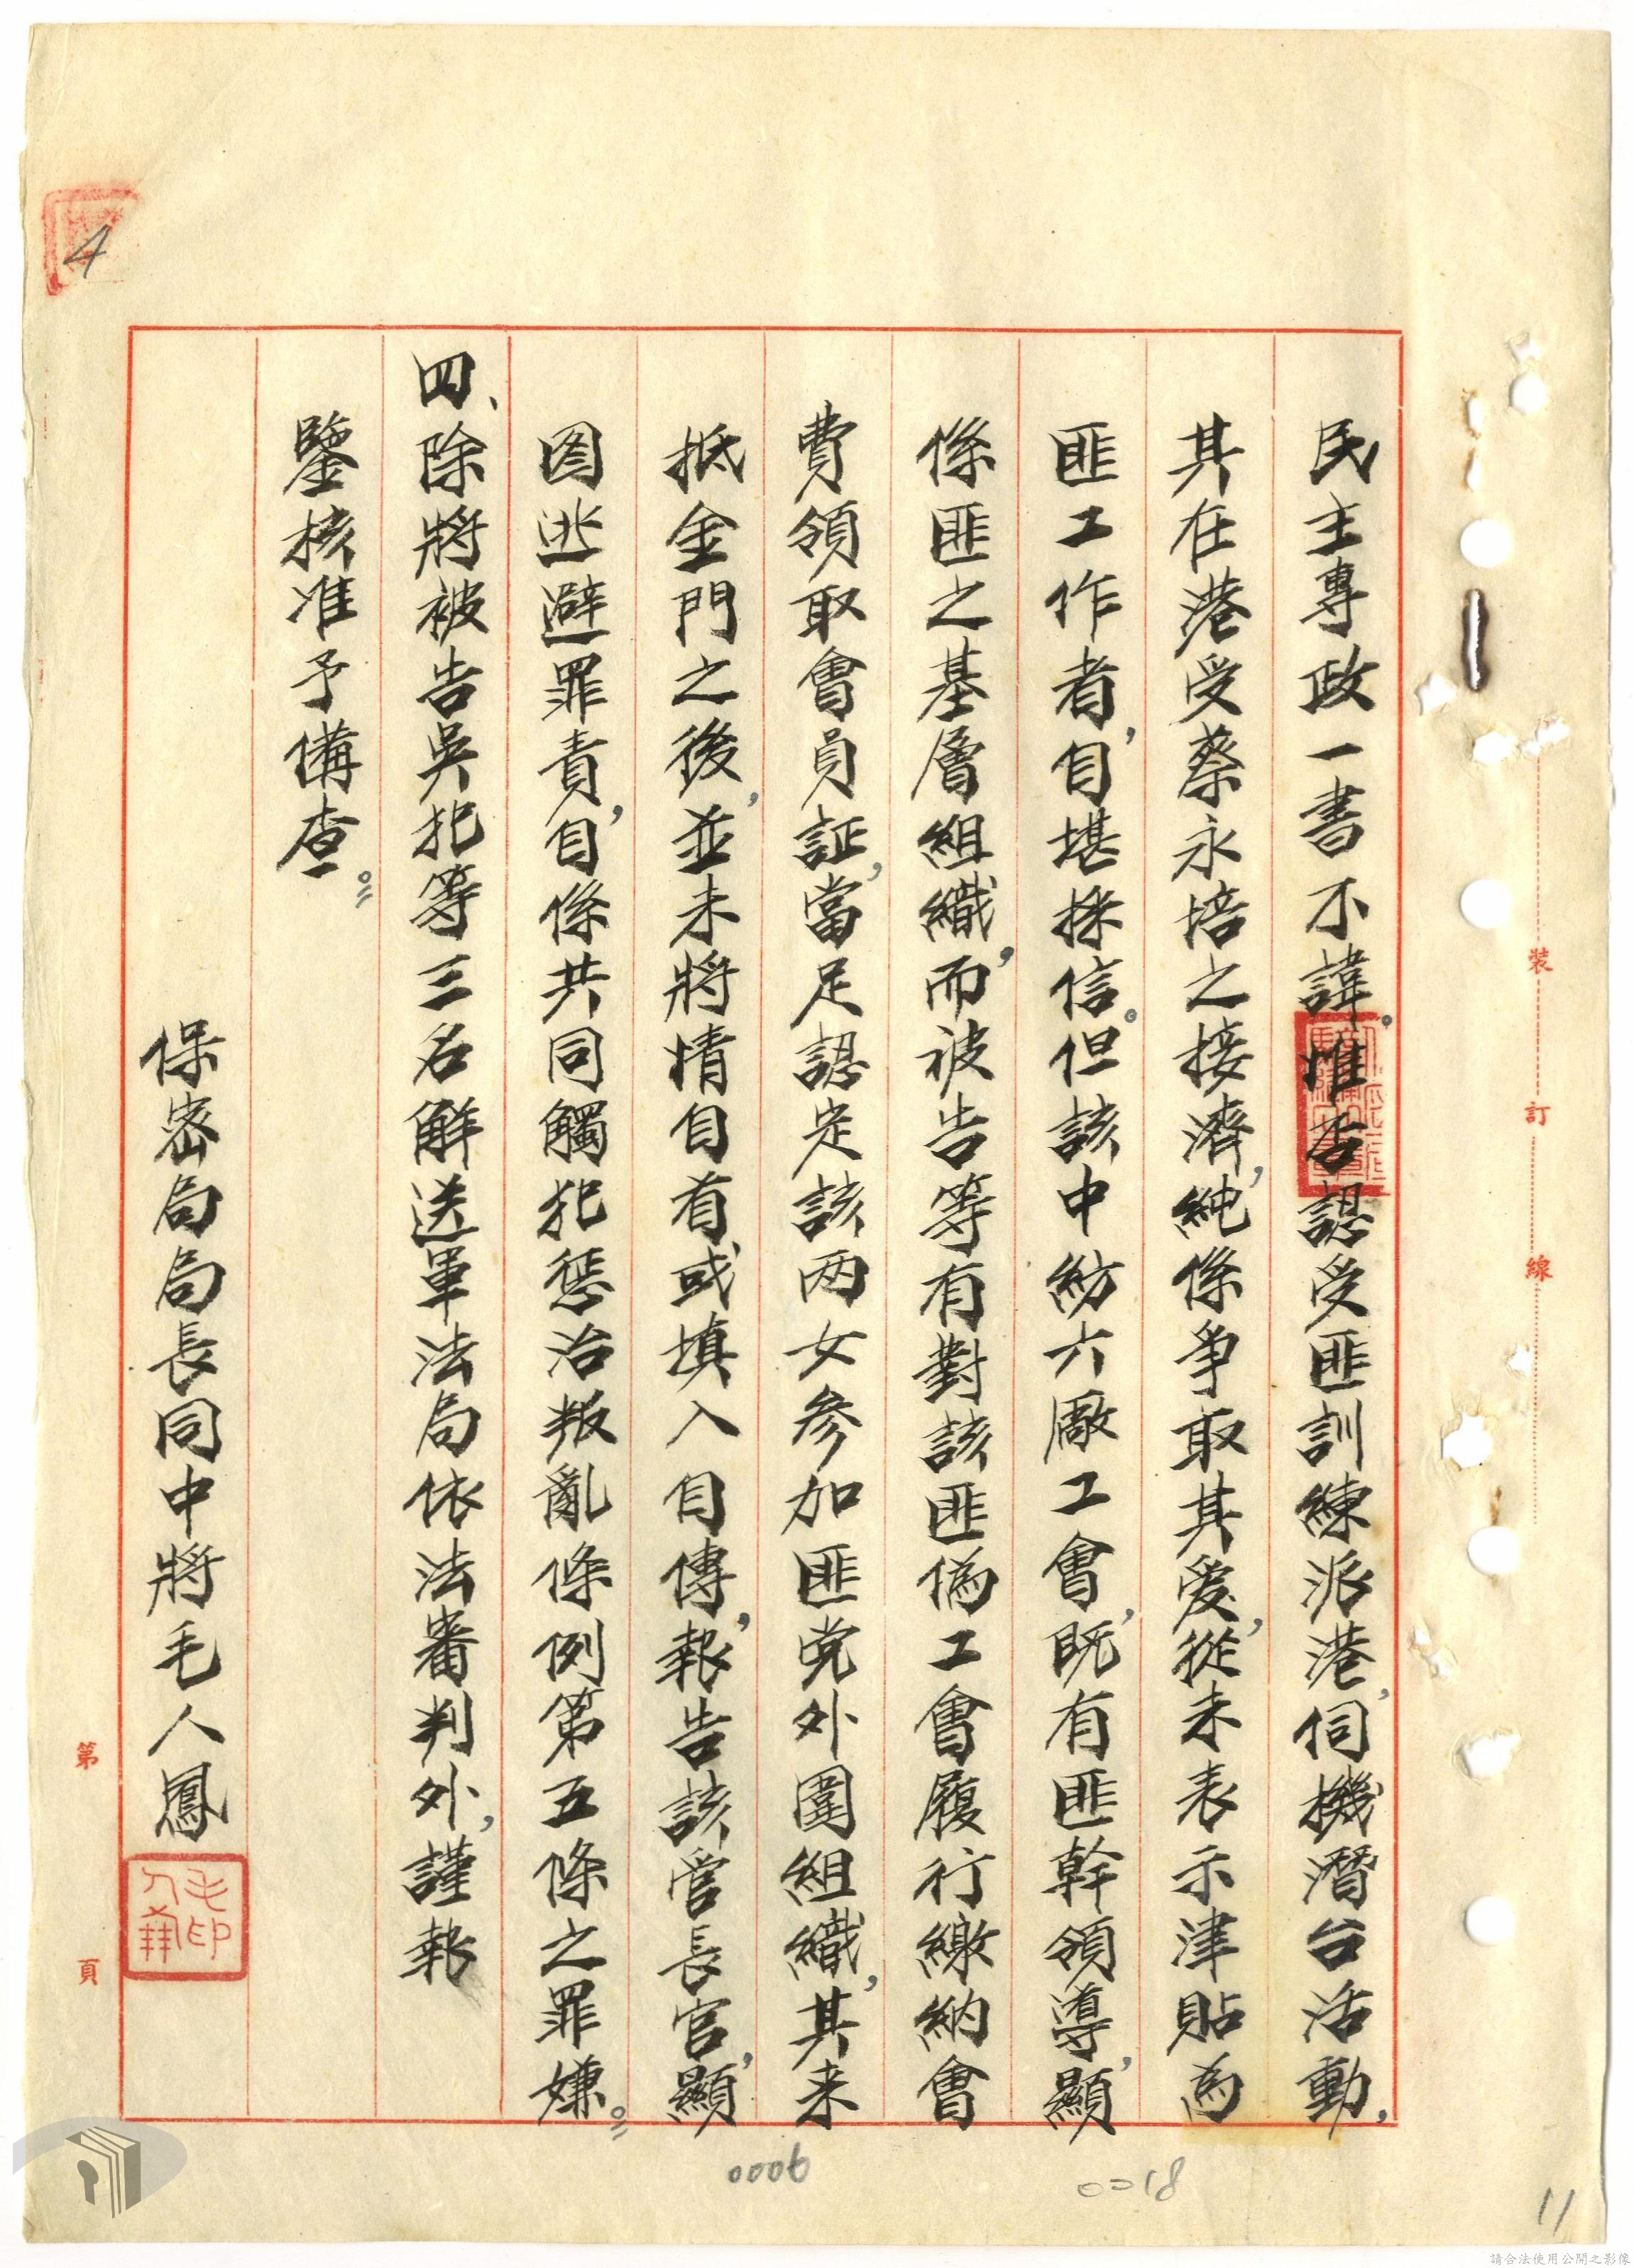 民主專政一書不諱。惟否認受匪訓練派港,伺機潛台活動,
其在港受蔡永培之接濟,純係爭取其愛,從未表示津貼為
匪工作者,自堪採信。但該中紡六廠工會,既有匪幹領導,顯
係匪之基層組織,而被告等有對該匪偽工會履行繳納會
費領取會員証,當足認定該两女參加匪党外圍組織,其来
抵金門之後,並未將情自首或填入自傳,報告該管長官,顯
图逃避罪責,自係共同觸犯惩治叛亂條例第五條之罪嫌。
四、除將被告吳犯等三名解送軍法局依法審判外,謹報
鑒核准予備查。
保密局局長同中將毛人鳳
毛人鳳印
裝
訂
線
第
頁
4
0006
0018
11
請合法使用公開之影像